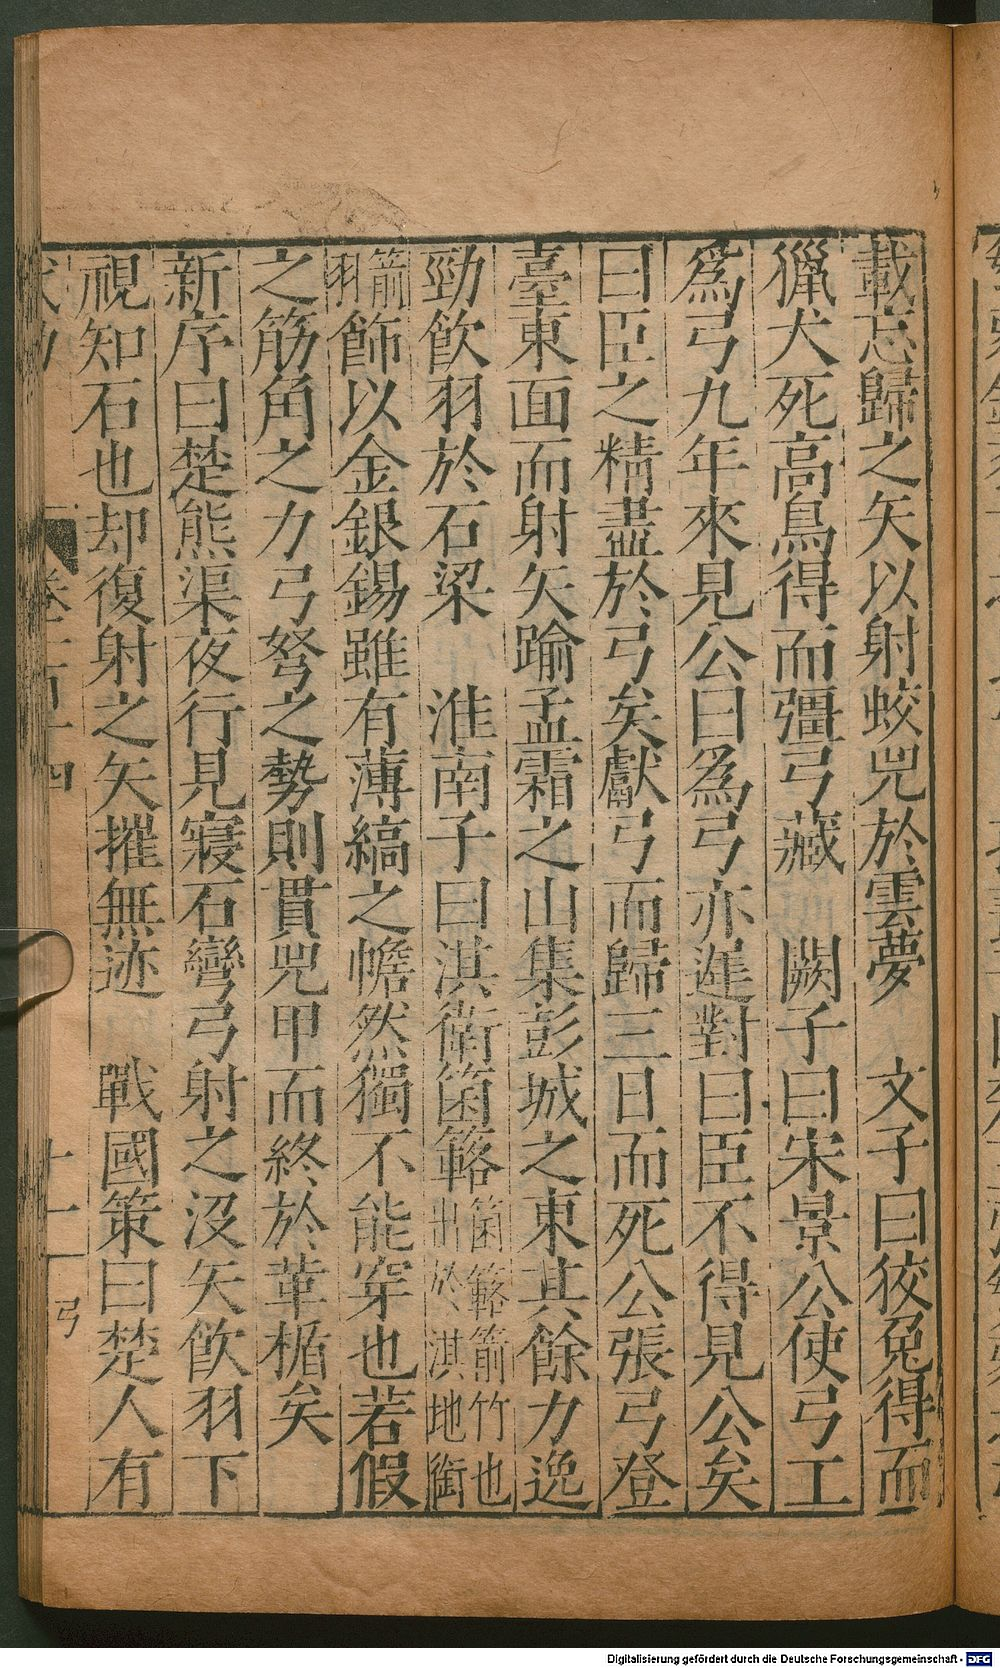 載忘歸之矢以射蛟兕於雲夢　文子曰狡兔得而
獵犬死高鳥得而彊弓藏　闕子曰宋景公使弓工
爲弓九年來見公曰爲弓亦遲對曰臣不得見公矣
曰臣之精盡於弓矣獻弓而歸三日而死公張弓登
臺東面而射矢踰孟霜之山集彭城之東其餘力逸
勁飲羽於石梁　淮南子曰淇衛箘簵箘簵箭竹也
出於淇地衛
箭
羽飾以金銀錫雖有薄縞之幨然獨不能穿也若假
之筋角之力弓弩之勢則貫兕甲而終於革楯矣
新序曰楚熊渠夜行見寢石彎弓射之沒矢飲羽下
視知石也却復射之矢摧無迹　戰國策曰楚人有
弓
Digitalisierung gefördert durch die Deutsche Forschungsgemeinschaft - DFG